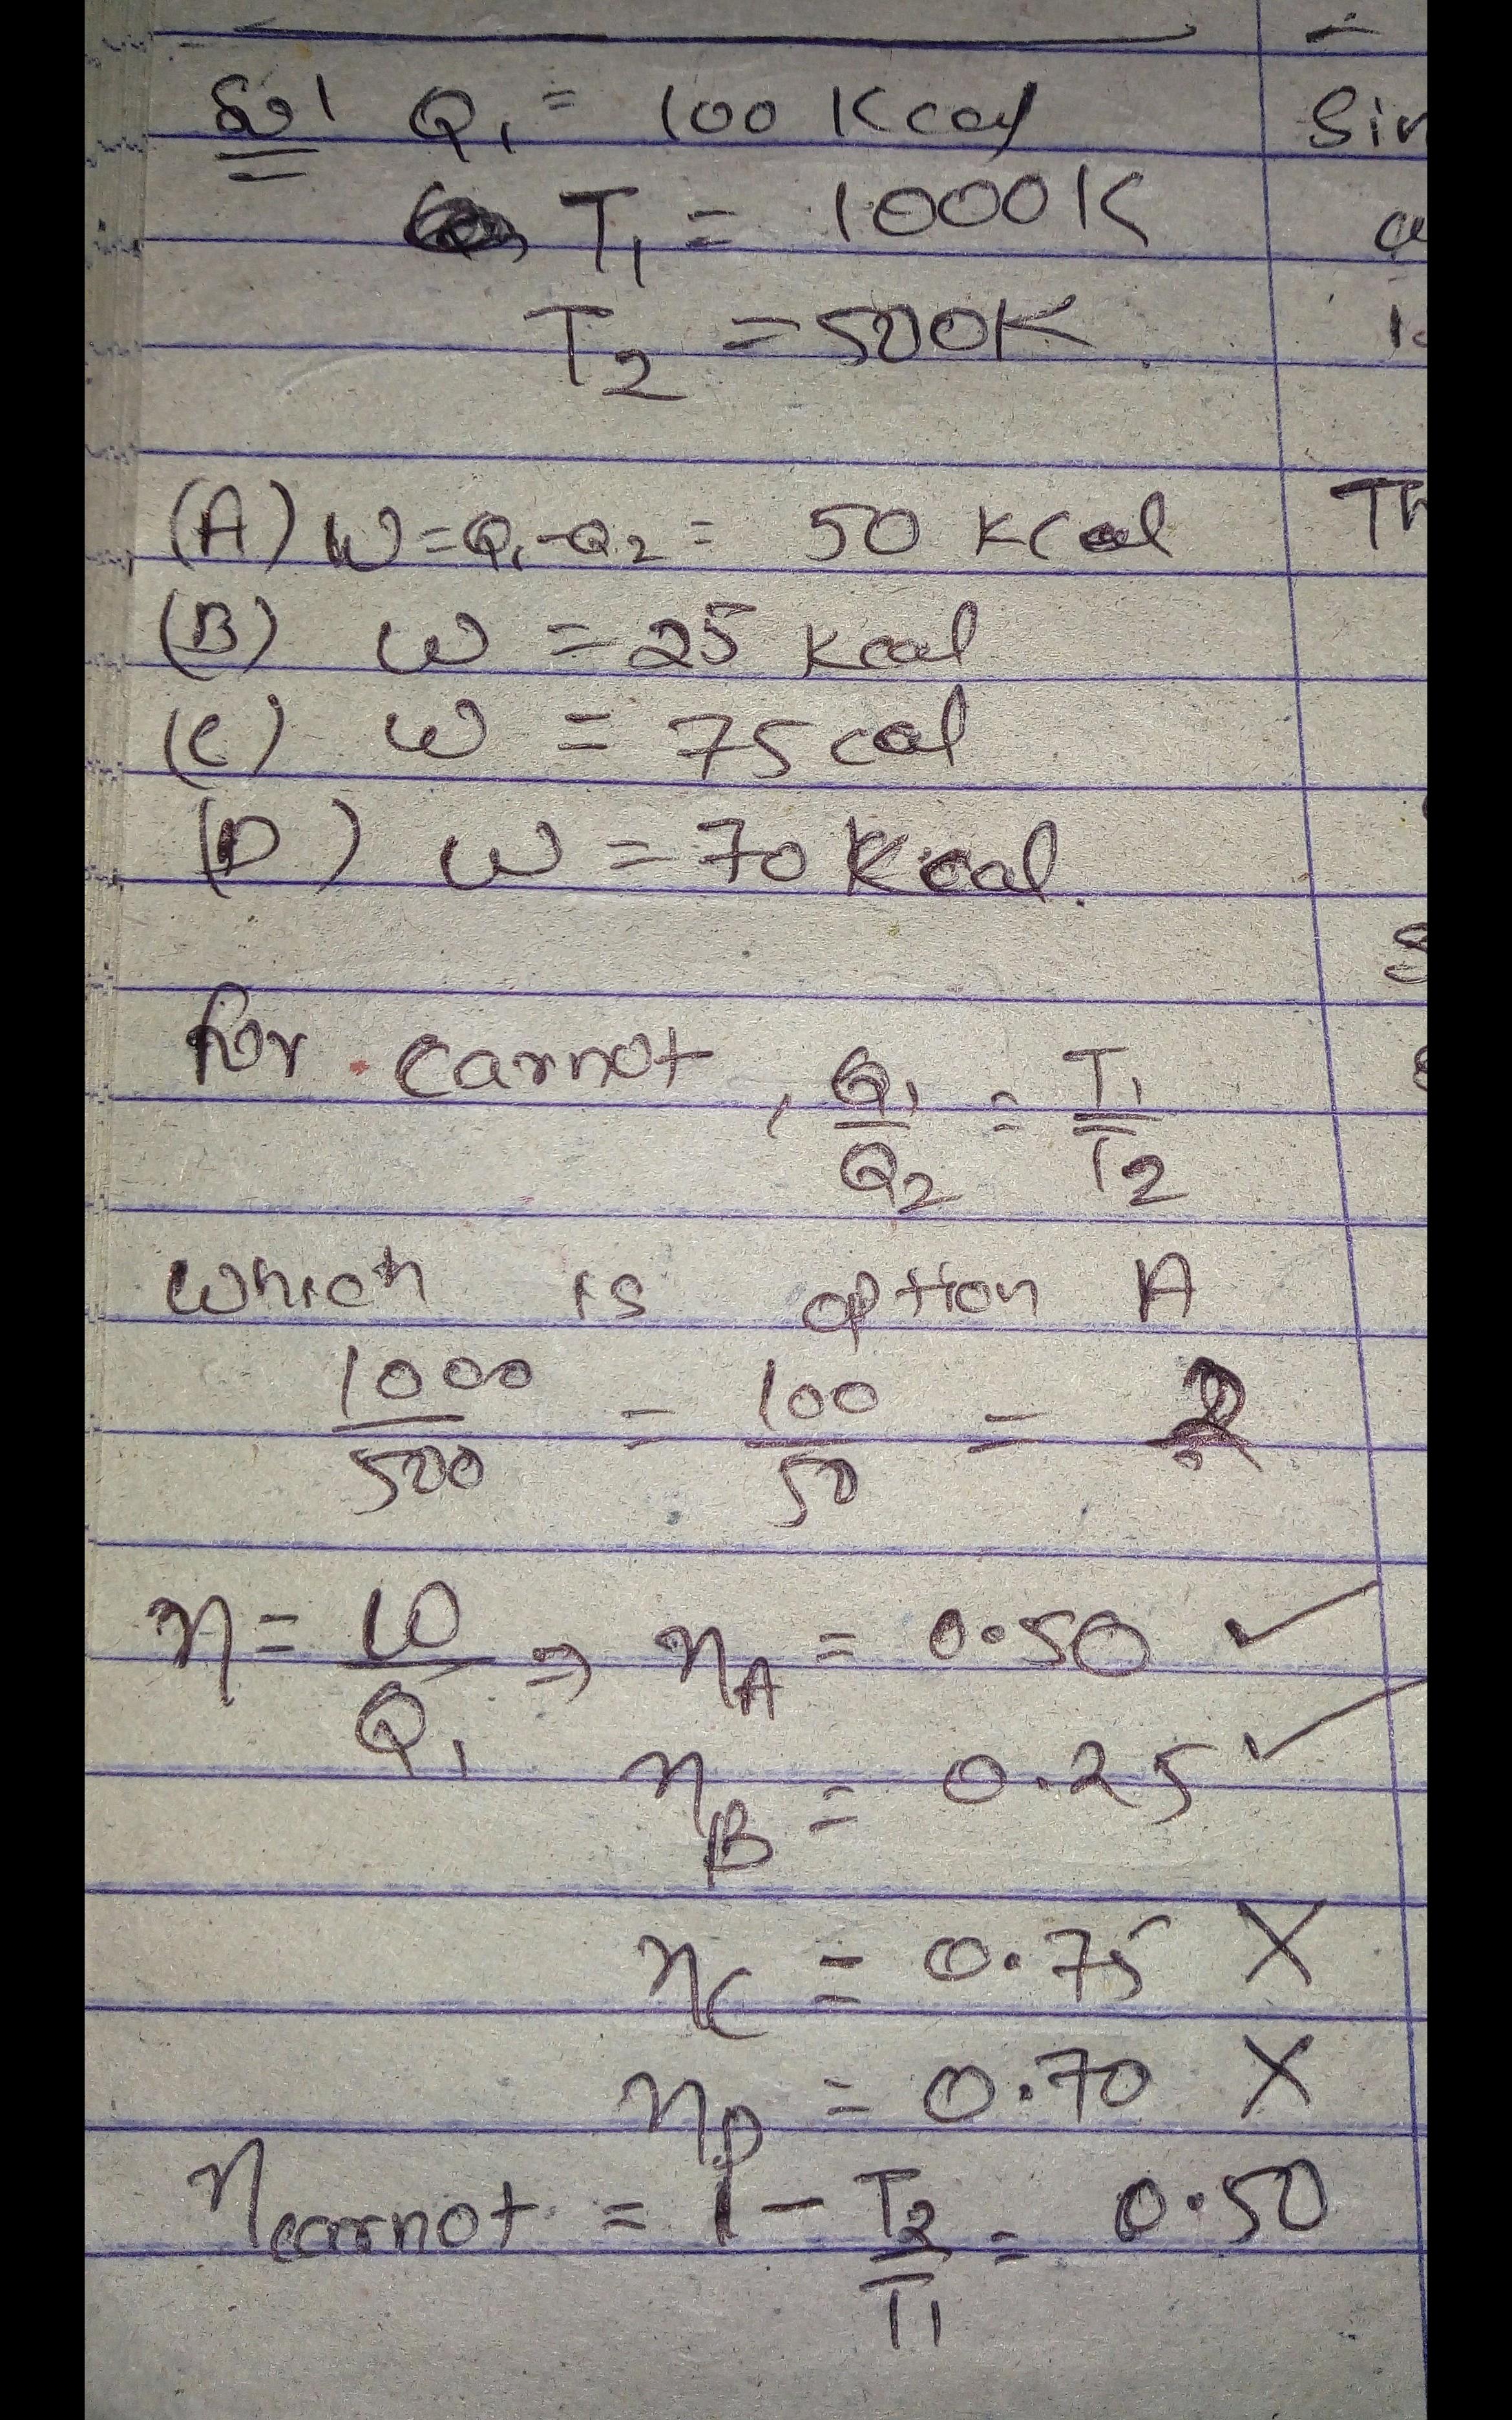 Sol Q₁ = 100 Kcal
T₁ = 1000K
T₂ = 500K
(A) W=Q₁-Q₂ = 50 Kcal
(B) W = 25 Kcal
(C) W = 75 cal
(D) W = 70 Kcal.
for carnot, Q₁/Q₂ = T₁/T₂
which is option A
1000/500 = 100/50 = 2
η = W/Q₁ ⇒ ηA = 0.50 ✓
ηB = 0.25 ✓
ηC = 0.75 X
ηD = 0.70 X
ηcarnot = 1 - T₂/T₁ = 0.50
Sin
Th